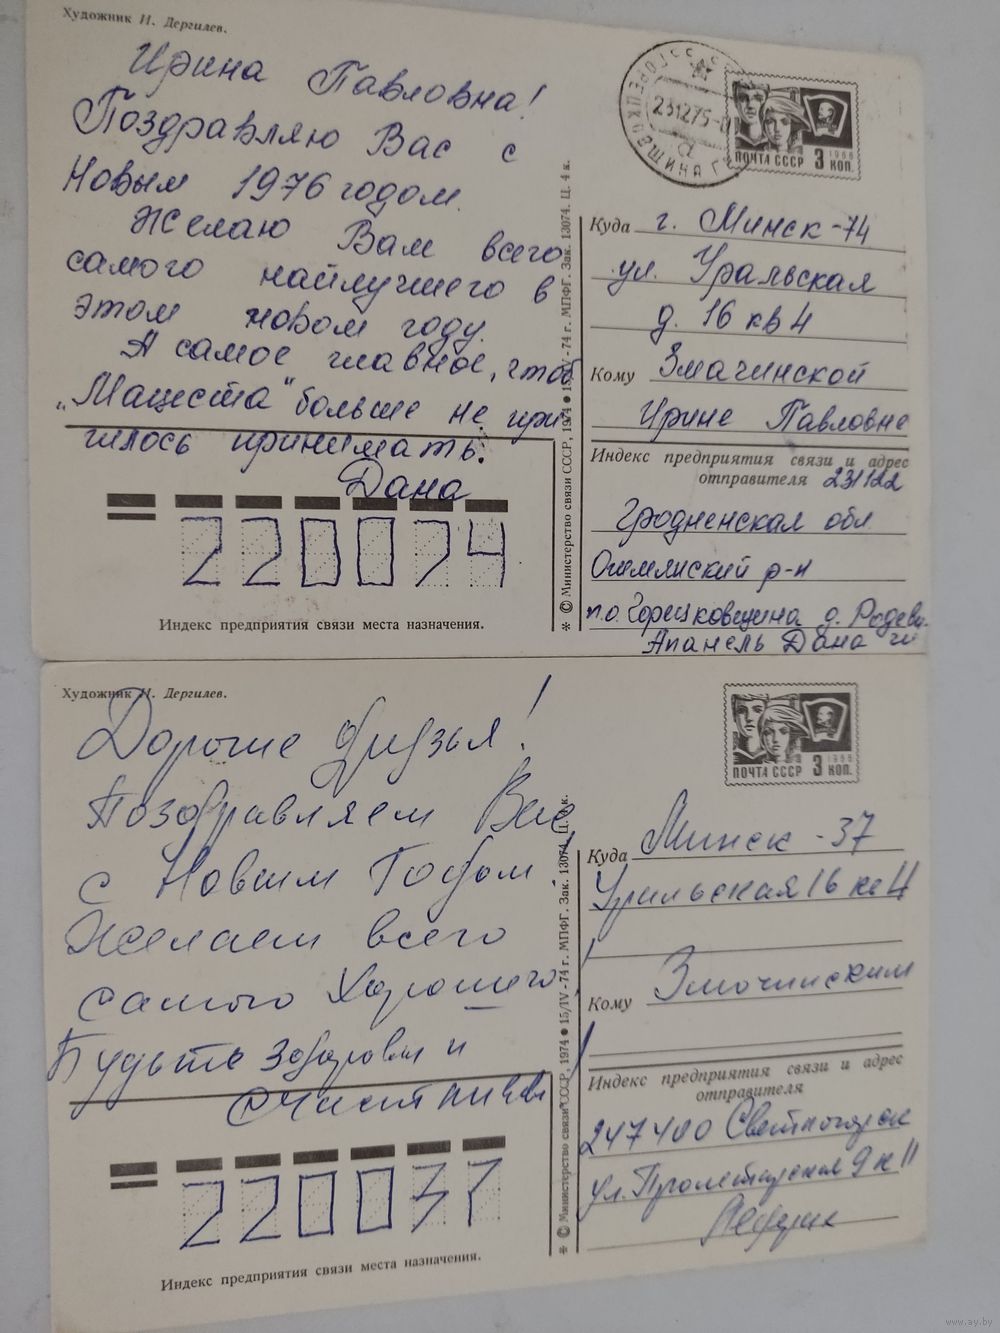 Художник И. Дергилев.
Ирина Павловна!
Поздравляю Вас с
Новым 1976 годом.
Желаю Вам всего
самого найлучшего в
этом новом году.
А самое главное, чтоб
„Мацеста" больше не при
шлось принимать.
Дана
220074
Индекс предприятия связи места назначения.
* © Министерство связи СССР, 1974 ● 15/IV-74 г. МПФГ. Зак. 13074. Ц. 4 к.
ГОРЕЦКОВЩИНА
231275
ПОЧТА СССР 3 КОП.
1966
Куда г. Минск-74
ул. Уральская
д. 16 кв 4
Кому Змачинской
Ирине Павловне
Индекс предприятия связи и адрес
отправителя 231122
Гродненская обл
Ошмянский р-н
п.о. Горецковщина д. Родеви-
Апанель Дана чи
Художник И. Дергилев.
Дорогие друзья!
Поздравляем Вас
с Новым Годом.
Желаем всего
самого хорошего!
Будьте здоровы и
счастливы!
220037
Индекс предприятия связи места назначения.
* © Министерство связи СССР, 1974 ● 15/IV-74 г. МПФГ. Зак. 13074. Ц. 4 к.
ПОЧТА СССР 3 КОП.
1966
Куда Минск-37
Уральская 16 кв 4
Кому Змочинским
Индекс предприятия связи и адрес
отправителя
247400 Светлогорск
ул. Пролетарская 9 к 11
www.ay.by